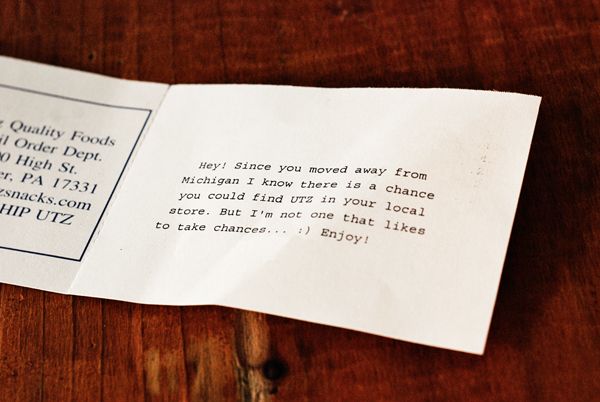 Quality Foods
Order Dept.
High St.
PA 17331
zsnacks.com
HIP UTZ
Hey! Since you moved away from
Michigan I know there is a chance
you could find UTZ in your local
store. But I'm not one that likes
to take chances... :) Enjoy!